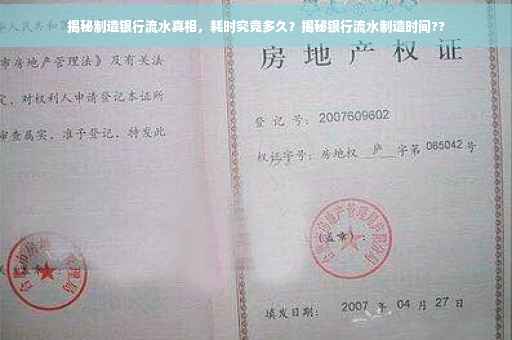 揭秘制造银行流水真相，耗时究竟多久？揭秘银行流水制造时间??
华人民共和国
市房地产管理法》及有关法
定，对权利人申请登记本证所
审查属实，准予登记，特发此
房地产权
登 记 号：2007609602
权证字号：房地权 庐 字第 085042 号
(盖章)：
填发日期： 2007 年 04 月 27 日